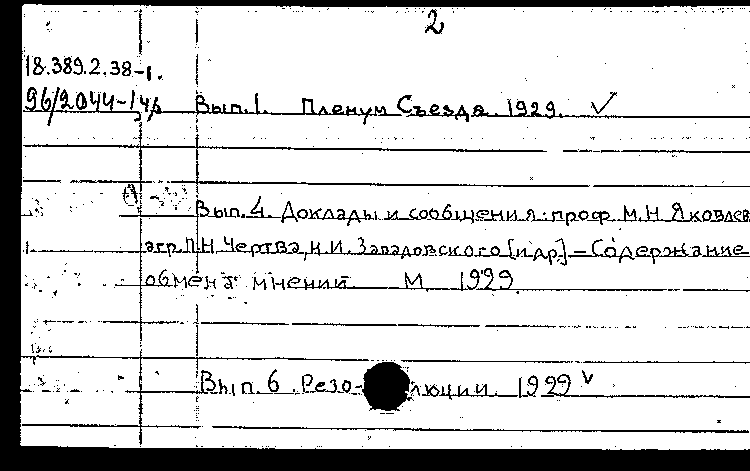 2
18.389.2.38-1.
96/2044-14/6 Вып.1. Пленум Съезда. 1929. ✓
Вып.4. Доклады и сообщения: проф. М.Н. Яковлев
агр. П.Н. Чертва, Н.И. Завадовского [и др.] – Содержание
обмена мнений. М. 1929.
Вып.6. Резо- люции. 1929 v